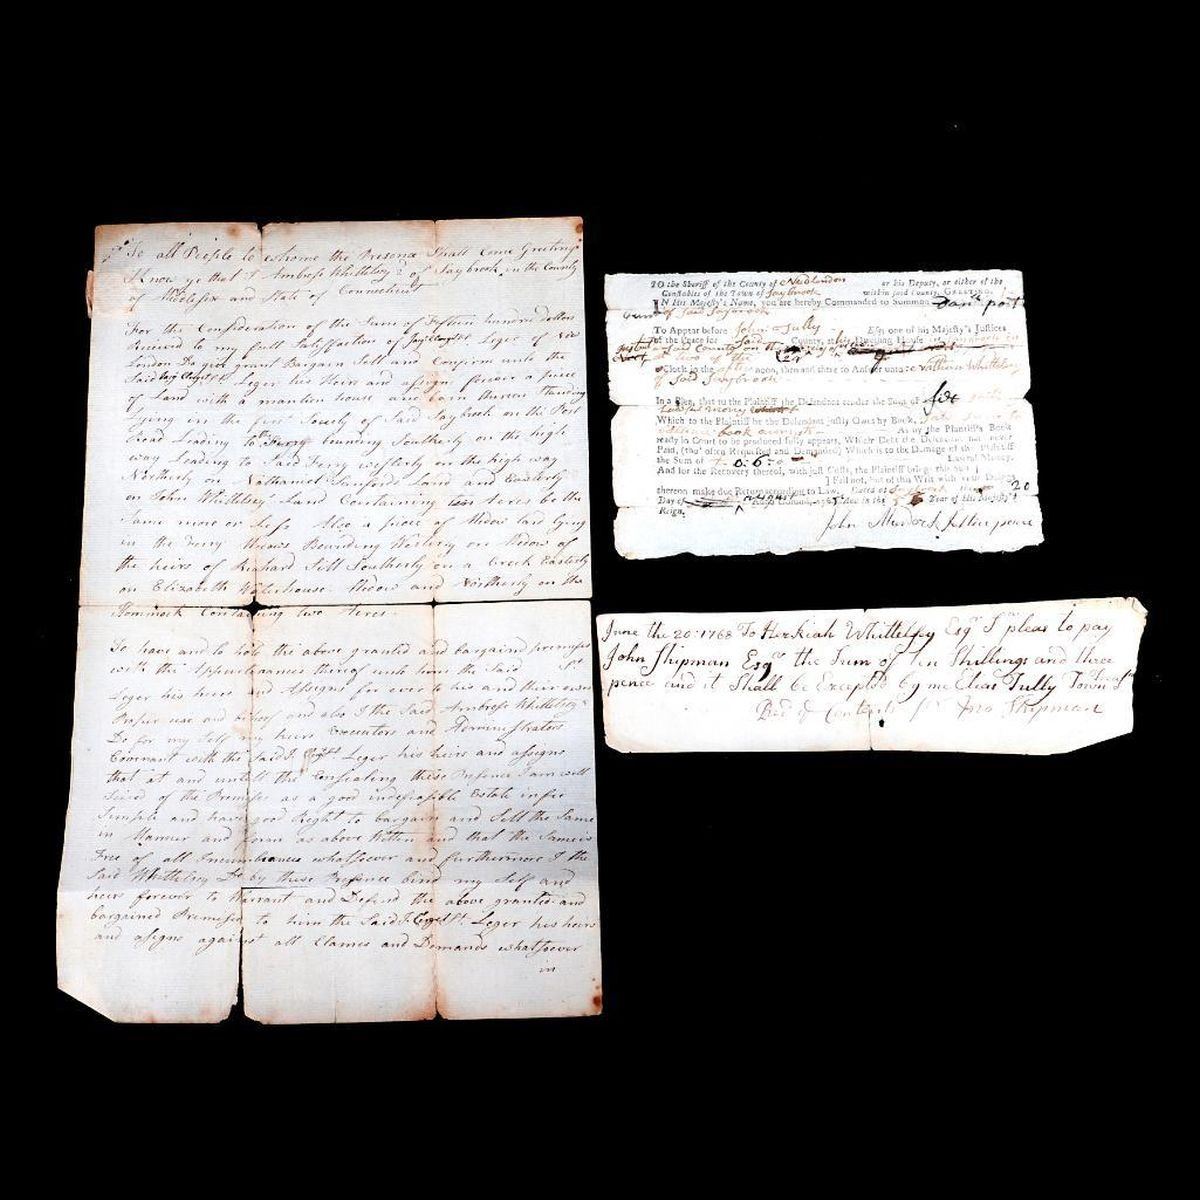 To all People to whome the Presence Shall Come Greeting
Know ye that I Ambross Whittelsey 2d of Saybrook in the County
of Middlesex and State of Connecticut
For the Consideration of the Sum of Fifteen hundred dollars
Recieved to my full Satisfaction of Leger of New
London Do give grant Bargain Sell and Confirm unto the
Said Leger his Heirs and assigns forever a piece
of Land with a mantion house and barn thereon Standing
lying in the first Society of Said Saybrook on the Post
Road Leading to Ferry bounding Southerly on the high
way Leading to Said Ferry westerly on the high way
Northerly on Nathaniel Sanfords Land and Easterly
on John Whittelsey Land Containing ten Acres be the
Same more or less Also a piece of Medow land lying
in the ferry Bounding Westerly on Medow of
the heirs of Richard Sill Southerly on a Creek Easterly
on Elizabeth Waterhouse Medow and Northerly on the
Hommock Containing two Acres
To have and to hold the above granted and bargaind premises
with the Appurtenances thereof unto him the Said St
Leger his heirs and Assigns for ever to his and their own
Proper use and behoof and also I the Said Ambross Whittelsey 2
Do for my Self my heirs Executors and Administrators
Covenant with the Said J. Leger his heirs and assigns
that at and untill the Ensealing these Presence I am well
Seized of the Premises as a good indefeasible Estate in fee
Simple and have good Right to bargain and Sell the Same
in Manner and form as above Written and that the Same is
Free of all Incumbrances whatsoever and furthermore I the
Said Whittelsey Do by these Presence bind my Self and
heirs forever to Warrant and Defend the above granted and
bargained Premises to him the Said J. St. Leger his heirs
and assigns against all Claimes and Demands whatsoever
in
TO the Sheriff of the County of New London or his Deputy, or either of the
Constables of the Town of Saybrook within said County, GREETING.
IN His Majesty's Name, you are hereby Commanded to Summon Dan post
of Said Saybrook
To Appear before John Tully Esq; one of his Majesty's Justices
of the Peace for Said County, at his Dwelling House
in Said County on the
at two of the
Clock in the afternoon, then and there to Answer unto Nathan Whittelsey
of Said Saybrook
In a Plea, that to the Plaintiff the Defendant render the Sum of
Lawful money
Which to the Plaintiff the Defendant justly Owes by Book,
book accounts As by the Plaintiff's Book
ready in Court to be produced fully appears, Which Debt the Defendant has never
Paid, (tho' often Requested and Demanded) Which is to the Damage of the Plaintiff
the Sum of 0:6:0 Lawful Money,
And for the Recovery thereof, with just Costs, the Plaintiff brings this Suit
Fail not, but of this Writ with your Doings
thereon make due Return according to Law. Dated at 20
Day of august in the Year of His Majesty's
Reign.
John Justice peace
June the 20: 1768 To Hezkiah Whittelsey Esqr Sr pleas to pay
John Shipman Esqr the Sum of ten Shillings and three
pence and it Shall be Excepted by me Elias Tully Town Treasr
Recd ye Contents pr Jno Shipman